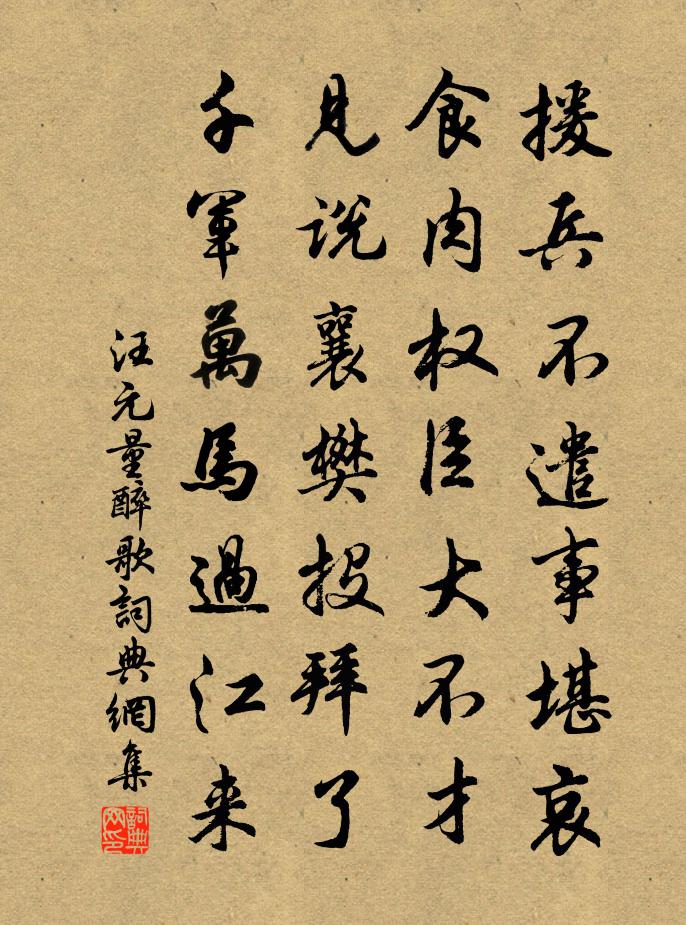 援兵不遣事堪哀
食肉权臣大不才
見説襄樊投拜了
千軍萬馬過江来
汪元量醉歌詞典網集
詞典網印